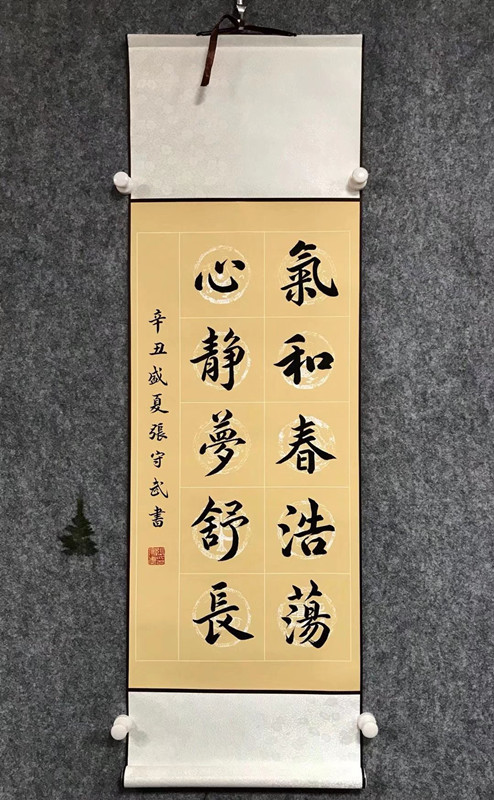 氣和春浩蕩
心静夢舒長
辛丑盛夏張守武書